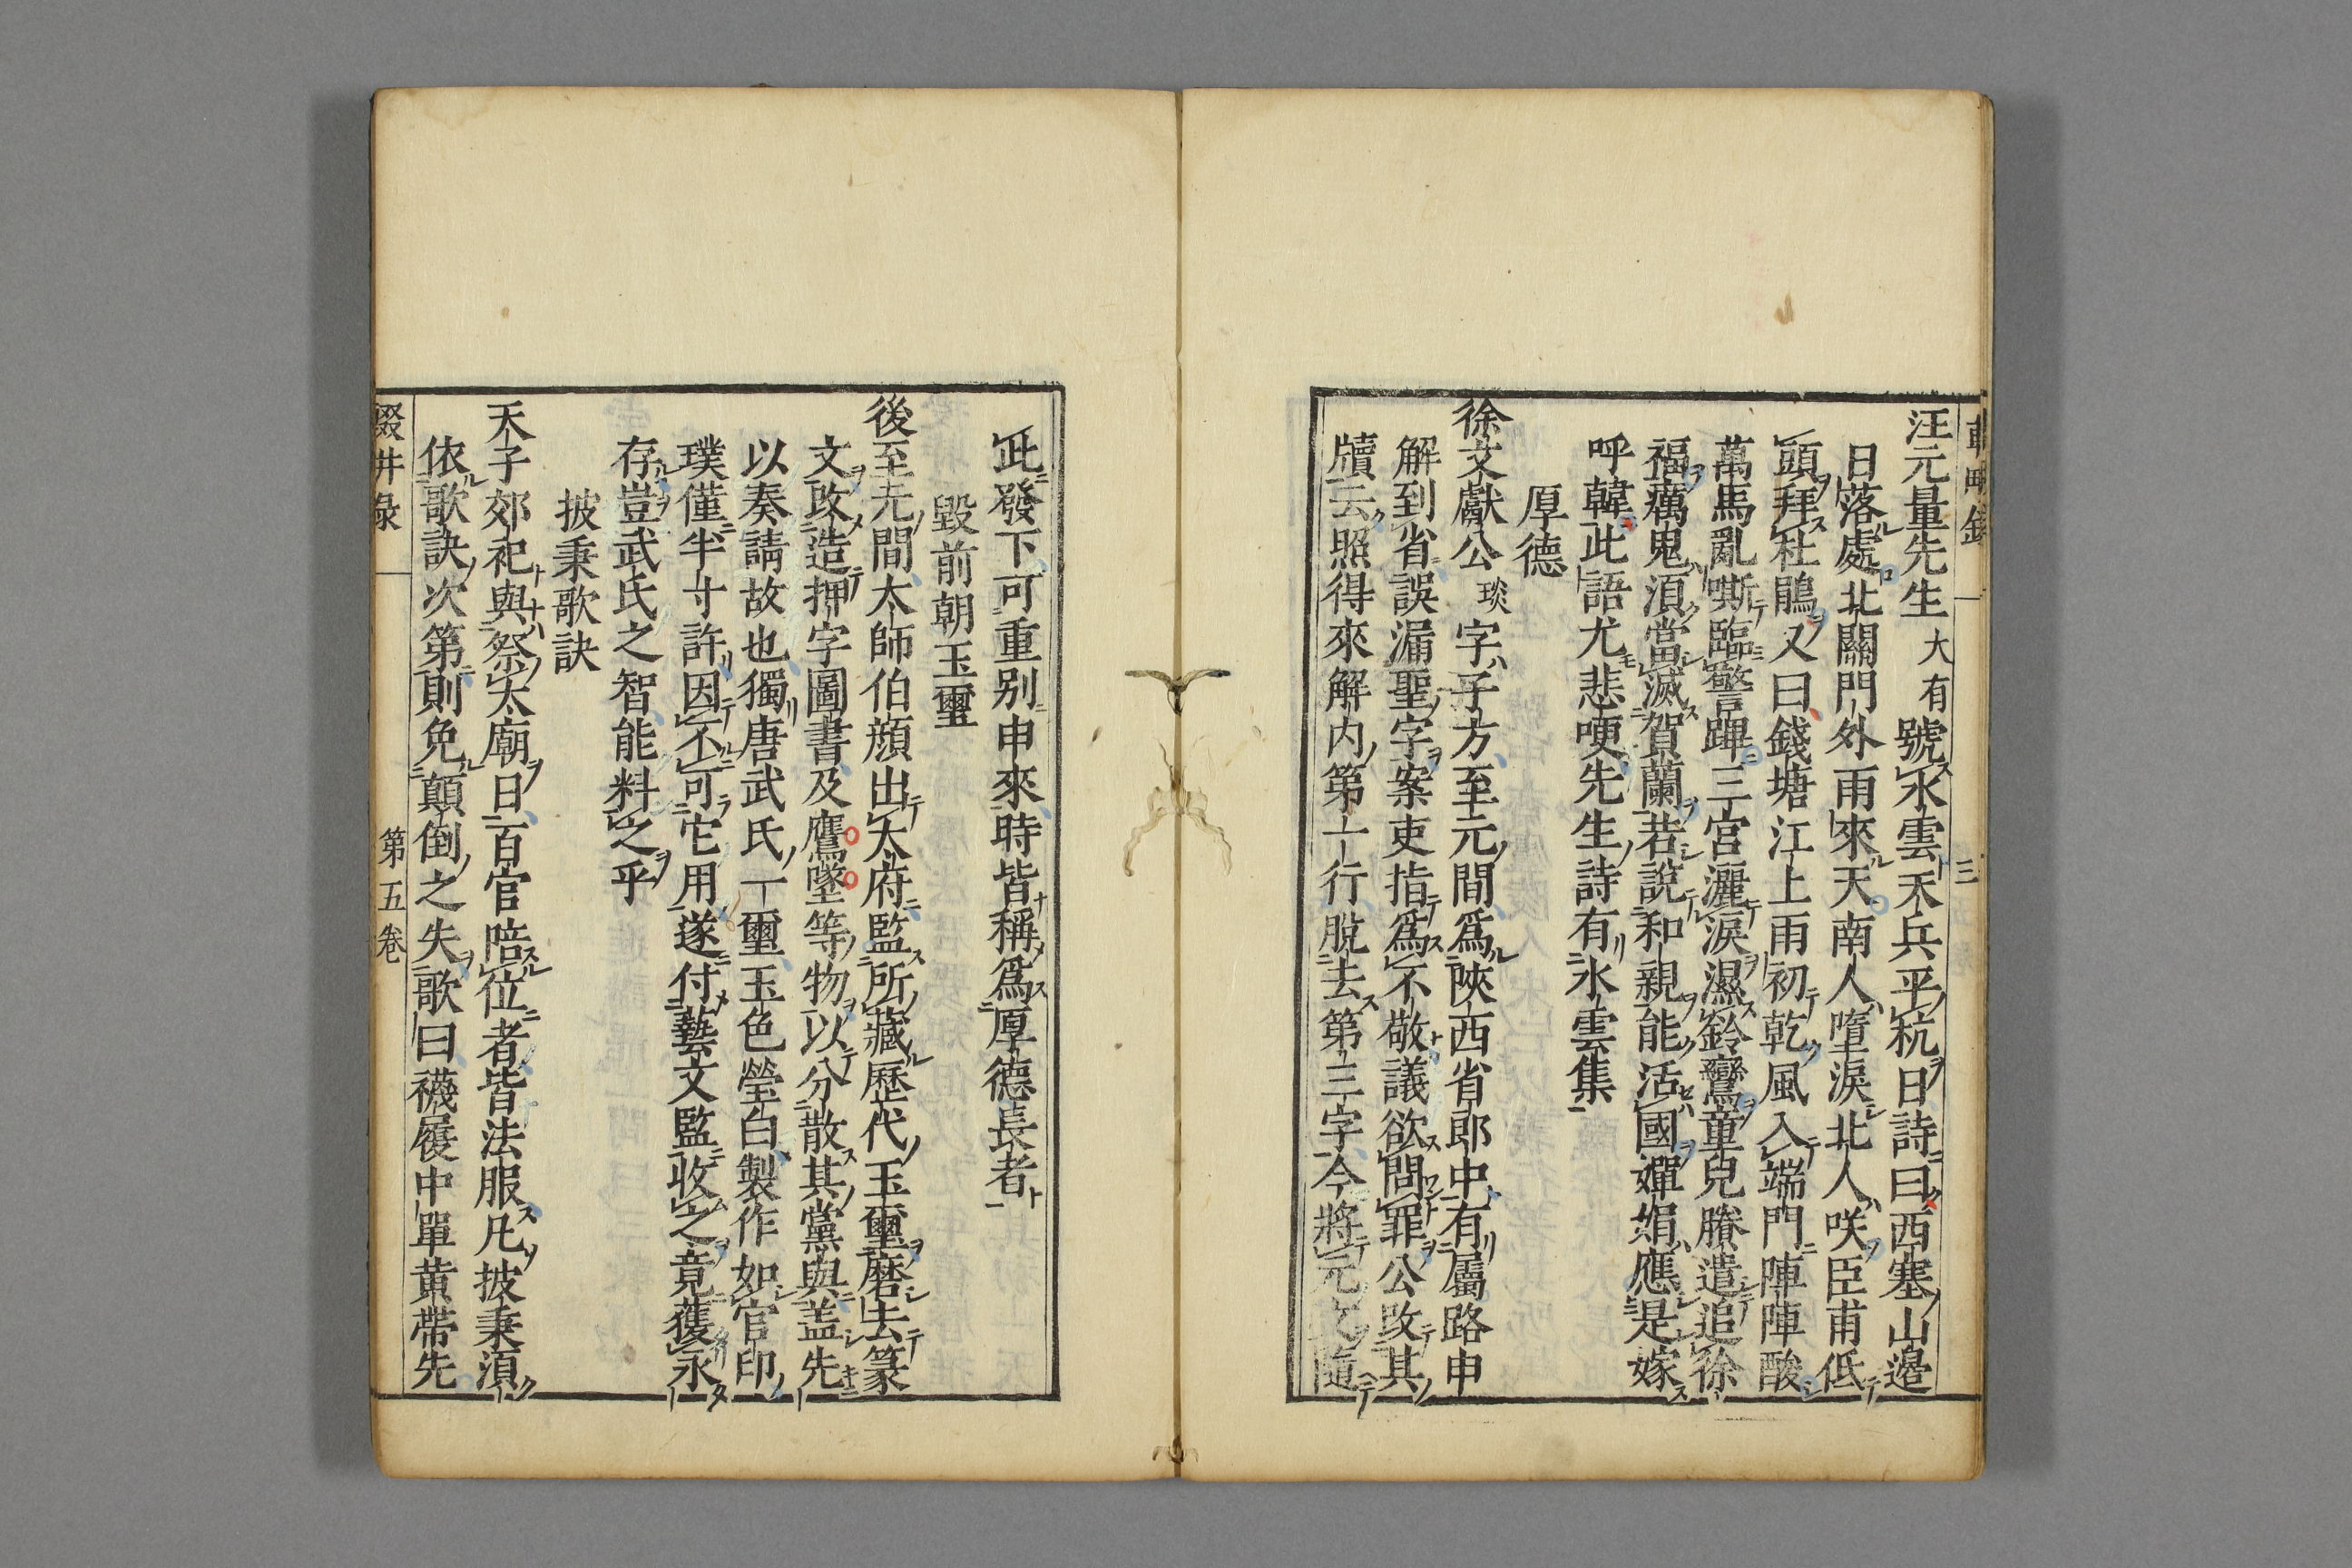 汪元量先生大有號水雲天兵平杭日詩曰西塞山邉
日落處北關門外雨來天南人墮淚北人咲臣甫低
頭拜杜鵑又曰錢塘江上雨初乾風入端門陣陣酸
萬馬亂嘶臨警蹕三宮灑淚濕鈴鸞童兒賸遣追徐
福癘鬼湏當滅賀蘭若說和親能活國嬋娟應是嫁
呼韓此語尤悲哽先生詩有水雲集
厚德
徐文獻公琰字子方至元間爲陝西省郎中有屬路申
解到省誤漏聖字案吏指爲不敬議欲問罪公改其
牘云照得來解内第一行脫去第三字今將元文隨
此發下可重别申來時皆稱爲厚德長者
毀前朝玉璽
後至元間太師伯顔出太府監所藏歷代玉璽磨去篆
文改造押字圖書及鷹墜等物以分散其黨與盖先
以奏請故也獨唐武氏一璽玉色瑩白製作如官印
璞僅半寸許因不可它用遂付藝文監收之竟獲永
存豈武氏之智能料之乎
披秉歌訣
天子郊祀與祭太廟日百官陪位者皆法服凡披秉湏
依歌訣次第則免顛倒之失歌曰襪履中單黄帶先
輟畊錄
三
輟畊錄
第五卷